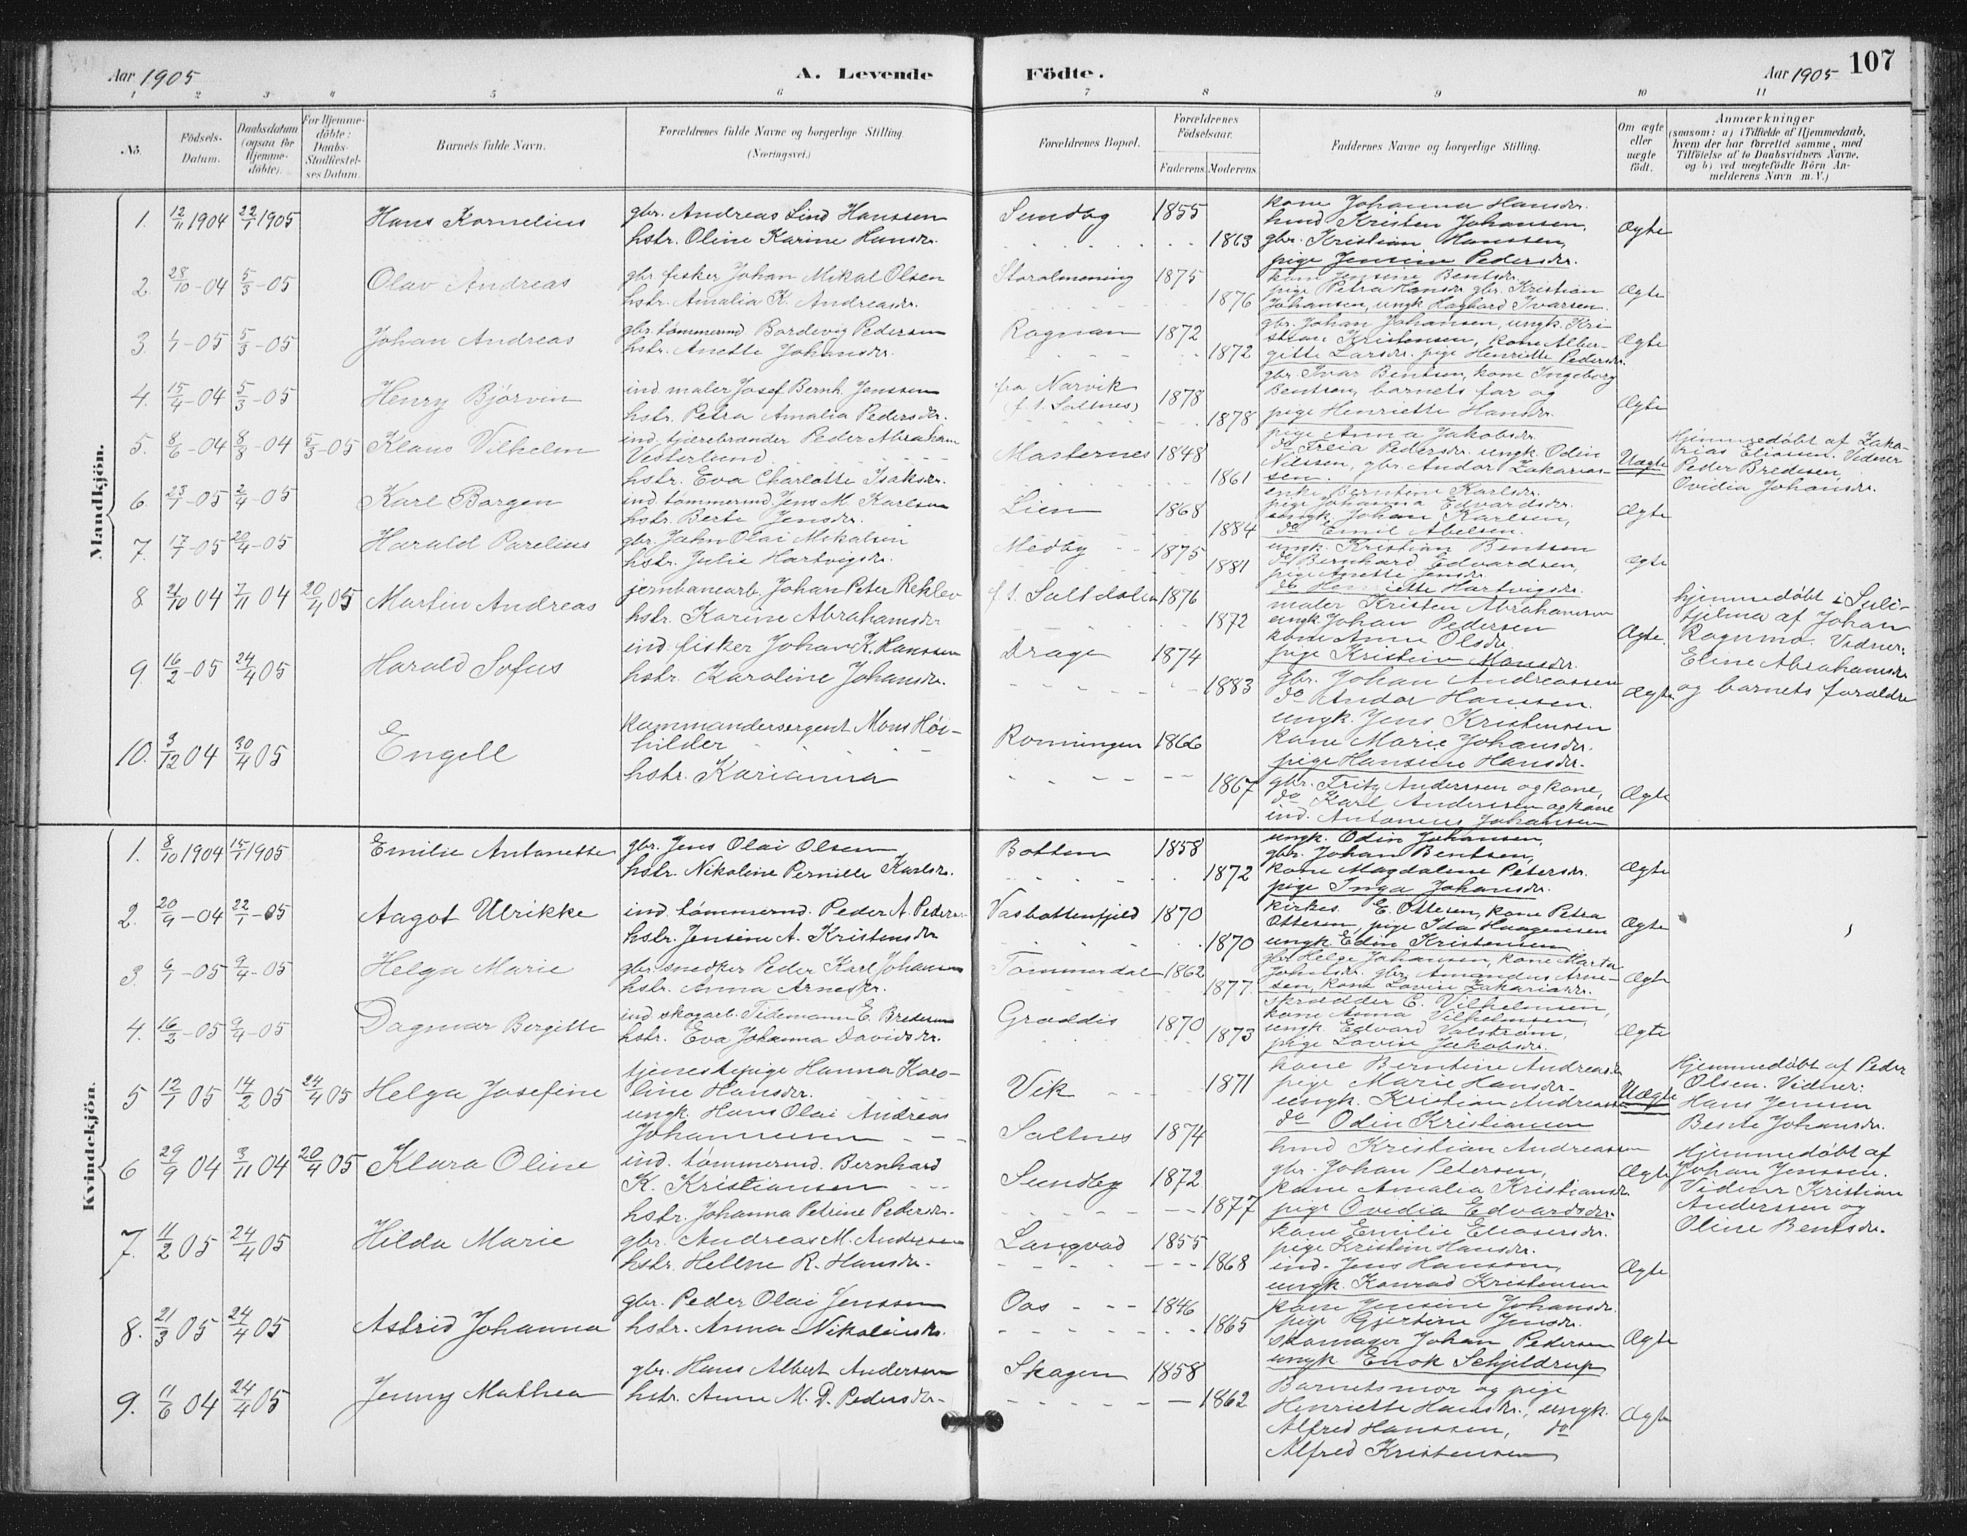 Aar 1905 A. Levende Födte. Aar 1905 107
1 2 3 4 5 6 7 8 9 10 11
No. Födsels-Datum. Daabsdatum (ogsaa for Hjemme-döbte). For Hjemme-döbte: Daabs-Stadfæstel-ses Datum. Barnets fulde Navn. Forældrenes fulde Navne og borgerlige Stilling. (Næringsvei.) Forældrenes Bopæl. Forældrenes Födselsaar. Faderens. Moderens. Faddernes Navne og borgerlige Stilling. Om ægte eller uægte födt. Anmærkninger (saasom: a) i Tilfælde af Hjemmedaab, hvem der har forrettet samme, med Tilföielse af to Daabsvidners Navne, og b) ved uægtefödte Börn An-melderens Navn m. V.)
Mandkjön.
1. 12/11 1904 22/1 1905 Hans Kornelius gbr. Andreas Lind Hanssen Sundby 1855 kone Johanna Hansdr.
hstr. Oline Karine Hansdr. 1863 hmd Kristen Johansen,
gbr. Kristian Hanssen, Ægte
pige Jensine Pedersdr.
2. 28/10-04 5/3-05 Olav Andreas gbr fisker Johan Mikal Olsen Storalmening 1875 kone Jensine Bentsdr.
hstr. Amalia K. Andreasdr. 1876 pige Petra Hansdr gbr. Kristian Ægte
Johansen, ungk Hagbard Ivarsen.
3. 1/1-05 5/3-05 Johan Andreas gbr. tømmermd Bordevig Pedersen Rognan 1872 gbr. Johan Johansen, ungk. Kri-
hstr. Anette Johansdr. 1872 stian Kristensen, kone Alber- Ægte
gitte Larsdr. pige Henriette Pedersdr.
4. 15/4-04 5/3-05 Henry Bjørvin ind. maler Josef Bernh. Jenssen fra Narvik 1878 gbr. Ivar Bentsen, kone Ingeborg
hstr. Petra Amalia Pedersdr. (f. t. Saltnes) 1878 Bentsen, barnets far og Ægte
pige Henriette Hansdr.
5. 8/6-04 8/8-04 5/3-05 Klaus Vilhelm ind. tjærebrænder Peder Abraham Vesterlund Masternes 1848 pige Anna Jakobsdr.
hstr. Eva Charlotte Isaksdr. 1861 do Freia Pedersdr. ungk. Odin Nilssen, gbr. Andor Zakarias-sen. Uægte
Hjemmedøbt af Zaka-
rias Eliassen. Vidner
Peder Bredesen,
Ovidia Johansdr.
6 23/1-05 2/4-05 Karl Borgen ind. tømmermd Jens M. Karlsen Lien 1868 enke Berntine Karlsdr.
hstr. Berte Jensdr. 1884 pige Johanna Edvardsdr.
ungk. Johan Karlsen, Ægte
do Emil Abelsen.
7. 17/1-05 20/4-05 Harald Parelius gbr. John Olai Mikalsen Medby 1875 ungk. Kristian Bentsen
hstr. Julie Hartvigsdr. 1881 do Bernhard Edvardsen, Ægte
pige Anette Jensdr.
do Henriette Hartvigsdr.
8 21/10 04 7/11 04 20/4 05 Martin Andreas jernbanearb. Johan Peter Rehlev f. t. Saltdalen 1876 maler Kristen Abrahamsen
hstr. Karine Abrahamsdr. 1872 ungk. Johan Pedersen
kone Anne Olsdr. Ægte.
pige Kristine Monsdr.
hjemmedøbt i Suli-
tjelma af Johan
Rognmo. Vidner:
Eline Abrahamsdr
og barnets forældre
9. 16/2-05 24/4 05 Harald Sofus ind. fisker Johan K. Hanssen Drage 1874 gbr. Johan Andreassen
hstr. Karoline Johansdr. 1883 do Andor Hanssen. Ægte
ungk. Jens Kristensen
kone Marie Johansdr.
pige Hansine Hansdr.
10. 3/12 04 30/4 05 Engell kommandersergent Mons Høi-hilder Rønningen 1866
hstr. Karianna 1867 gbr. Fritz Anderssen og kone,
do Karl Anderssen og kone Ægte
ind. Antonius Johansen
Kvindekjön.
1. 8/10 1904 15/1 1905 Emilie Antonette gbr. Jens Olai Olsen Botten 1858 ungk. Odin Johansen,
hstr. Nikoline Pernille Karlsdr. 1872 gbr. Johan Bentsen,
kone Magdalene Petersdr. Ægte
pige Inga Johansdr.
2. 20/9-04 22/1-05 Aagot Ulrikke ind. tømmermd. Peder A. Peders. Vasbottenfjeld 1870 kirkes. E. Ottesen, kone Petra
hstr. Jensine A. Kristensdr 1870 Ottesen, pige Ida Haagensen Ægte
ungk. Edin Kristensen
3. 6/1-05 9/4-05 Helga Marie gbr. snedker Peder Karl Johansen Tømmerdal 1862 gbr Helge Johansen, kone Marta
hstr. Anna Arnesdr. 1877. Johnsdr. gbr. Amandus Arne-sen, kone Lovise Zakariasdr. Ægte
4. 16/2-05 9/4-05 Dagmar Bergitte ind skogarb. Tidemann E. Bredesen Graddis 1870 skrædder E. Vilhelmsen,
hstr. Eva Johanna Davidsdr. 1873 kone Anna Vilhelmsen,
ungk Edvard Valstrøm, Ægte
pige Lovise Jakobsdr.
5 12/1 05 14/2 05 24/4 05 Helga Josefine tjenestepige Hanna Karo- Vik 1871 kone Berntine Andreasdr
line Hansdr. pige Marie Hansdr.
ungk. Hans Olai Andreas ungk. Kristian Andreassen Uægte
Johannessen Saltnes 1874 do Odin Kristiansen
Hjemmedøbt af Peder
Olsen. Vidner:
Hans Jensen
Bente Johansdr.
6 29/9 04 3/11 04 20/4 05 Klara Oline ind. tømmermd. Bernhard Sundby 1872 hmd Kristian Andreassen
K. Kristiansen gbr. Johan Petersen, Ægte
hstr. Johanna Petrine Pedersdr. 1877 kone Amalia Kristiansdr.
pige Ovidia Edvardsdr.
Hjemmedøbt af
Johan Jenssen.
Vidner Kristian
Anderssen og
Oline Bentsdr.
7. 11/2 05 24/4 05 Hilda Marie gbr. Andreas M. Andersen Langvad 1855 kone Emilie Eliasersdr.
hstr. Hellne R. Hansdr. 1868 pige Kristine Hansdr.
ind. Jens Hanssen, Ægte
ungk. Konrad Kristensen
8. 21/3 05 24/4 05 Astrid Johanna gbr. Peder Olai Jenssen Oas 1846 kone Jensine Johansdr.
hstr. Anna Nikolaisdr. 1865 pige Gjertine Jensdr.
skomager Johan Pedersen Ægte
ungk Enok Schjeldrup
9. 11/6 04 24/4 05 Jenny Mathea gbr. Hans Albert Andersen Skagen 1858 Barnets mor og pige
hstr. Anne M. D. Pedersdr. 1862 Henriette Hansdr., ungk. Ægte
Alfred Hanssen, do
Alfred Kristensen